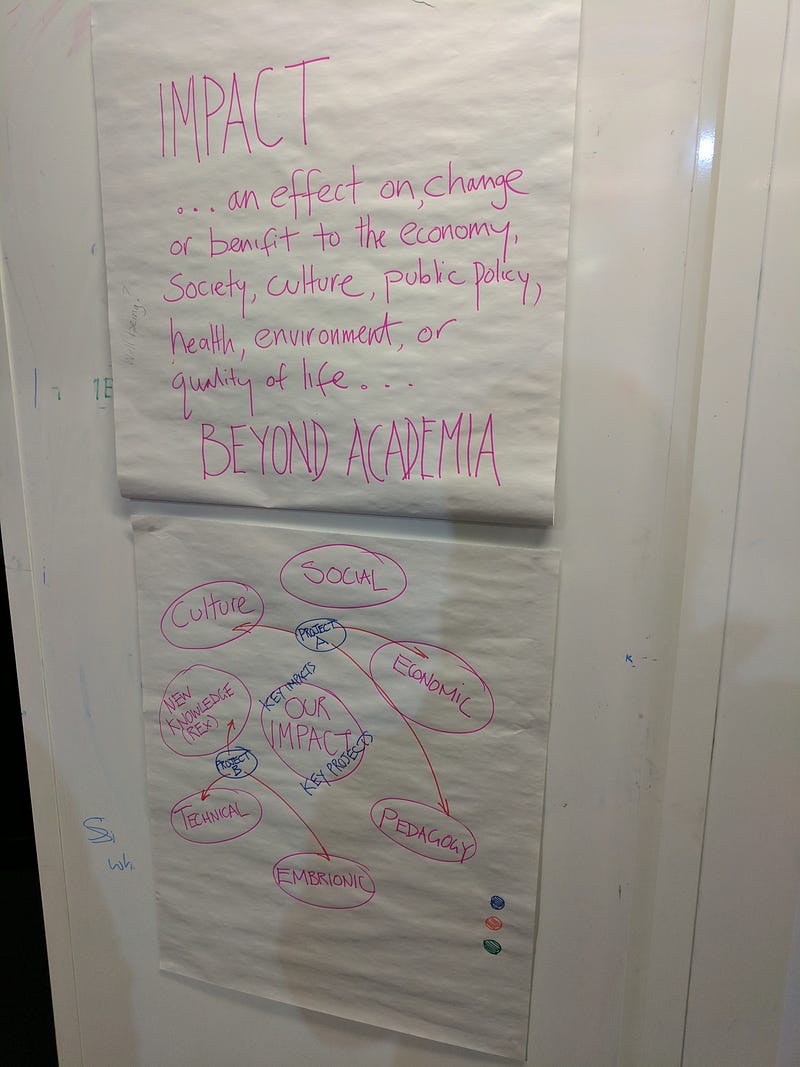 IMPACT
... an effect on, change
or benifit to the economy,
Society, culture, public policy,
health, environment, or
quality of life ...
BEYOND ACADEMIA
Wellbeing?
SOCIAL
Culture
PROJECT
A
ECONOMIC
NEW
KNOWLEDGE
(REX)
KEY IMPACTS
OUR
IMPACT
KEY PROJECTS
PROJECT
B
TECHNICAL
PEDAGOGY
EMBRIONIC